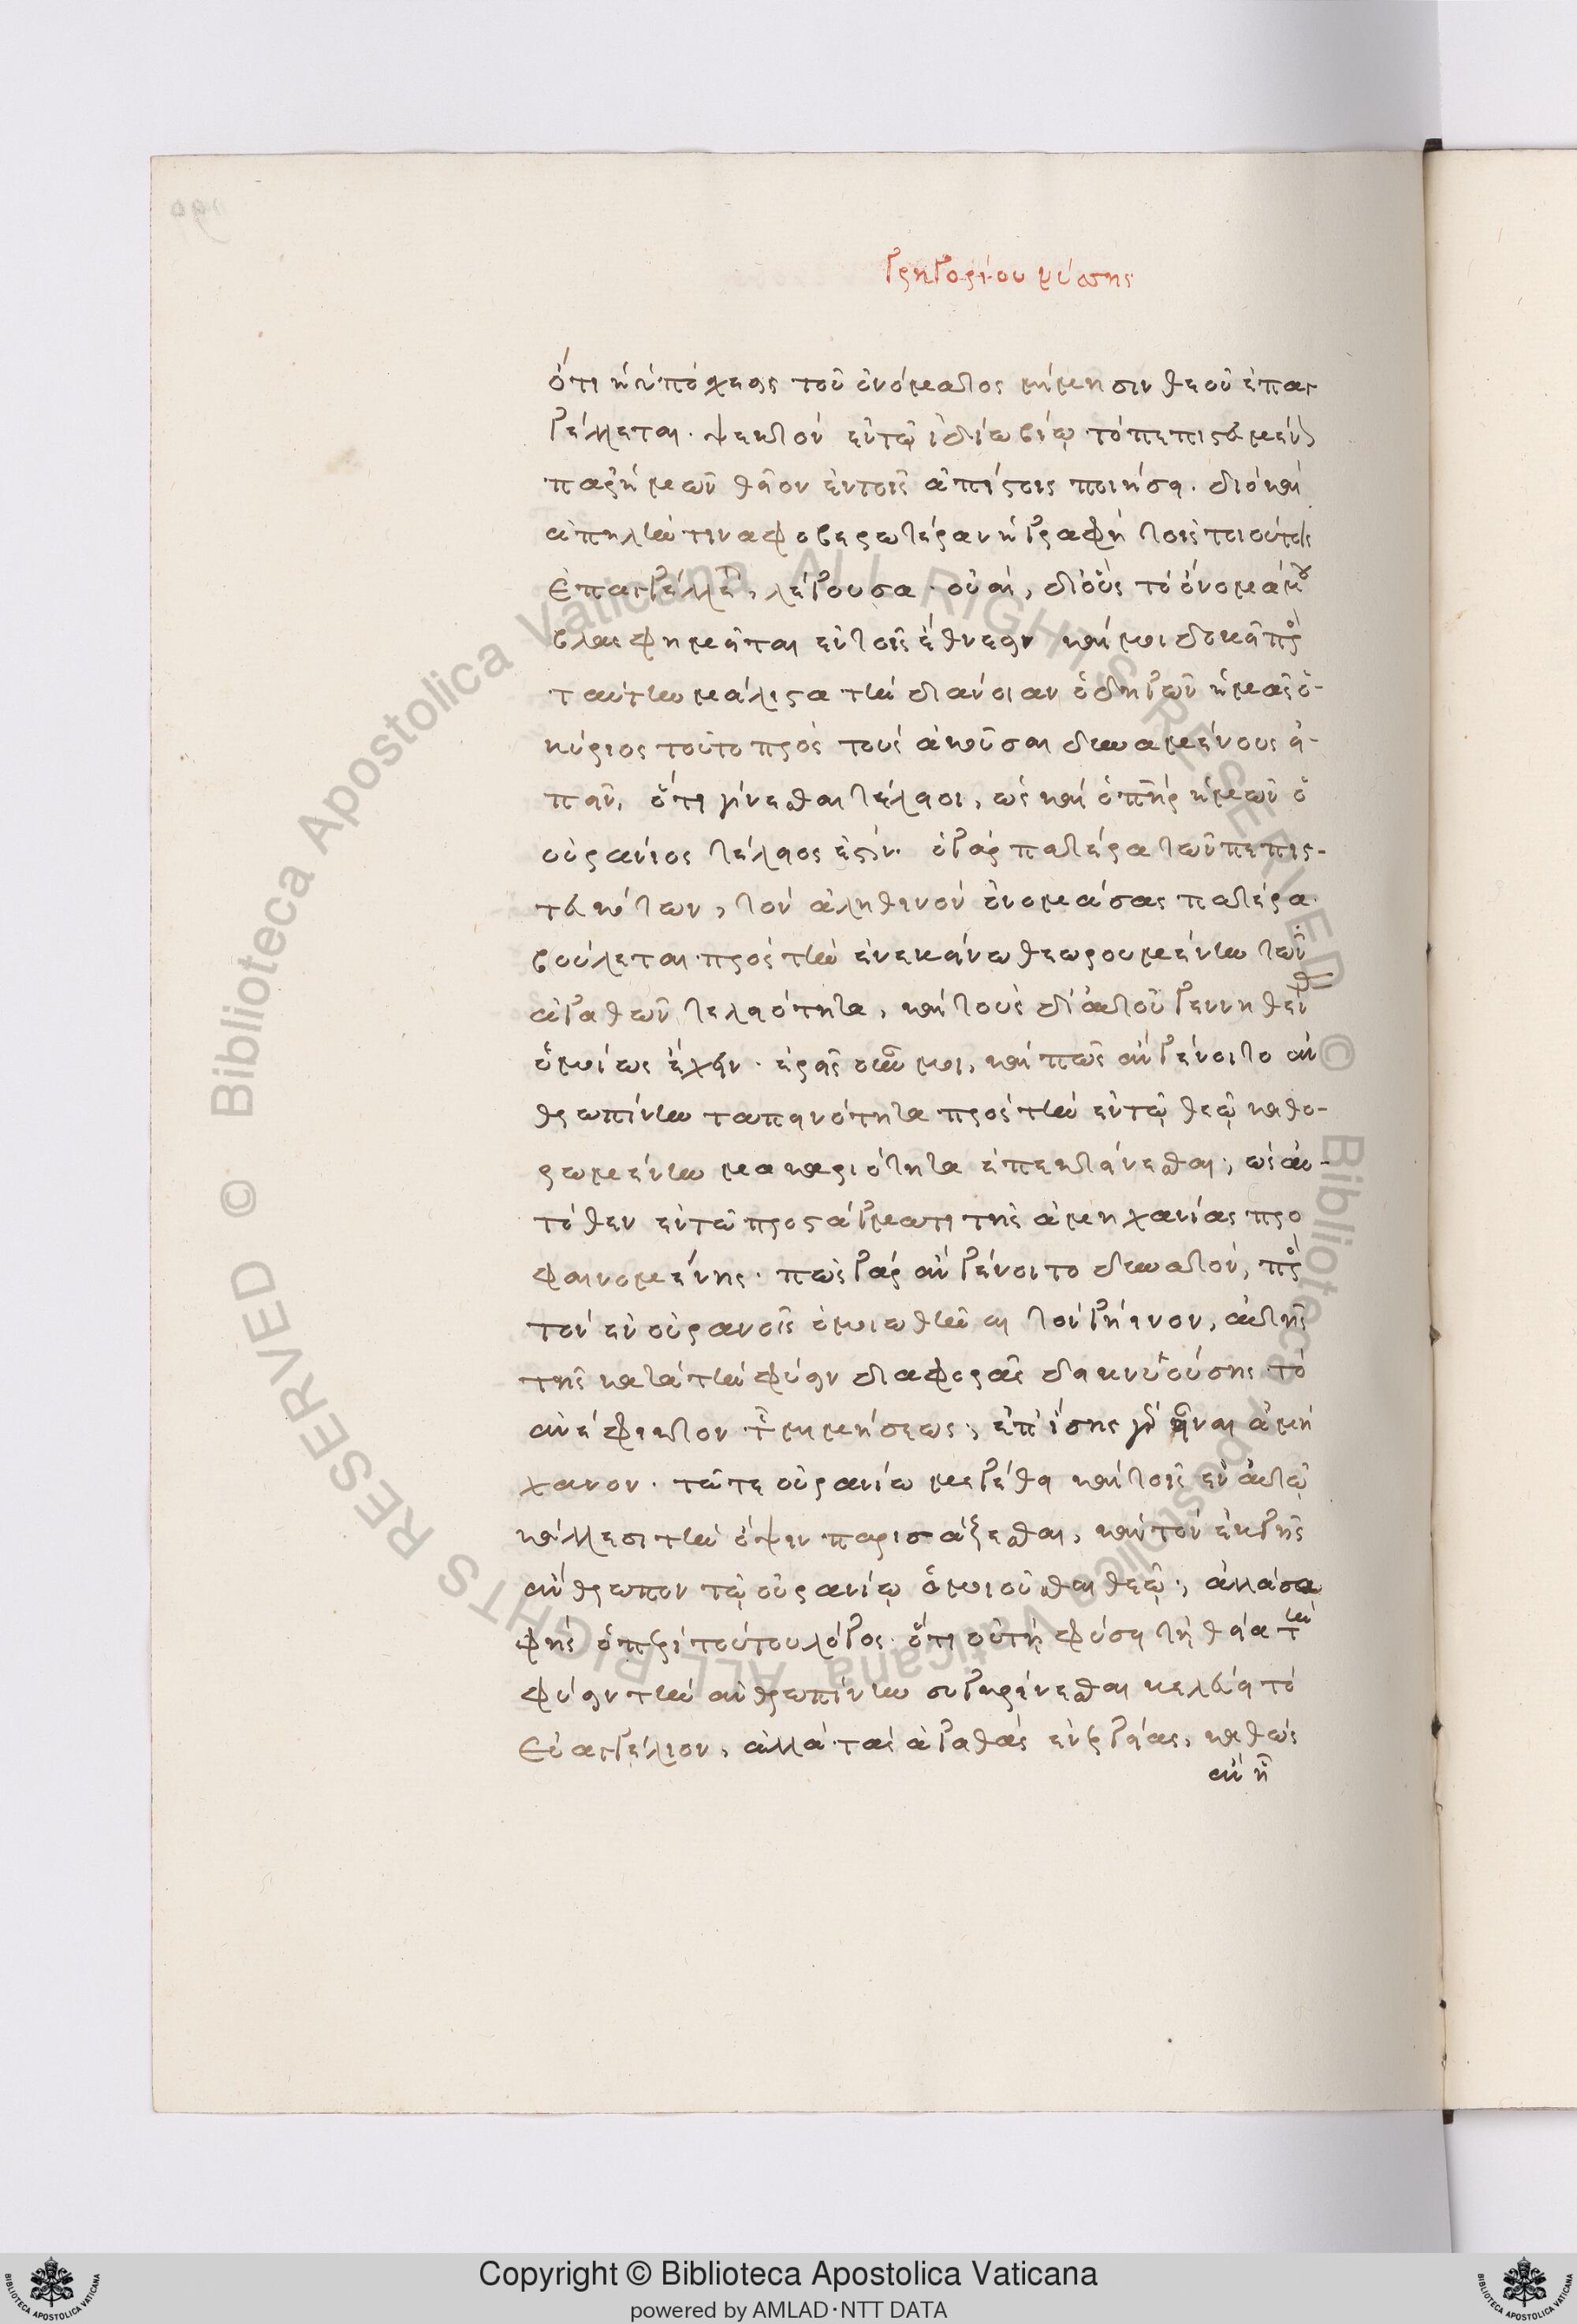 Γρηγορίου νύσης
ὅτι ἡ ὑπόσχεσις τοῦ ὀνόματος μίμησιν θεοῦ ἐπαγ-
γέλλεται. ψεκτὸν ἐν τῷ ἰδίω βίῳ τὸ πεπιστευμένον
παρ' ἡμῶν θεῖον ἐν τοῖς ἀπίστοις ποιήσει. διὸ καὶ
ἀπειλήν τινα φοβερωτέραν ἡ γραφὴ τοῖς τοιούτοις
ἐπαγγέλλει, λέγουσα. οὐαὶ, δι' οὓς τὸ ὄνομά μου
βλασφημεῖται ἐν τοῖς ἔθνεσιν καί μοι δοκεῖ πρὸς
ταύτην μάλιστα τὴν διάνοιαν ὁδηγῶν ἡμᾶς ὁ-
κύριος τοῦτο πρὸς τοὺς ἀκοῦσαι δυναμένους εἰ-
πεῖν, ὅτι γίνεσθαι τέλειοι, ὡς καὶ ὁ πηρ ἡμῶν ὁ
οὐράνιος τέλειός ἐστιν. ὁ γὰρ πατέρα τῶν πεπις-
τευκότων, τὸν ἀληθινὸν ὀνομάσας πατέρα.
βούλεται πρὸς τὴν ἐν ἐκείνω θεωρουμένην τῶν
ἀγαθῶν τελειότητα, καὶ τοὺς δι' αὐτοῦ γεννηθέντ
ὁμοίως ἔχειν. ἐρεῖς οὖν μοι, καὶ πῶς ἂν γένοιτο ἀν
θρωπίνην ταπεινότητα πρὸς τὴν ἐν τῷ θεῷ καθο-
ρωμένην μακαριότητα ἐπεκτείνεσθαι; ὡς αὐ-
τόθεν ἐν τῶ προστάγματι τῆς ἀμηχανίας προ
φαινομένης. πῶς γὰρ ἂν γένοιτο δυνατὸν, πρὸς
τὸν ἐν οὐρανοῖς ὁμοιωθῆναι τὸν γήϊνον, αὐτῆς
τῆς κατὰ τὴν φύσιν διαφορᾶς δεικνυούσης τὸ
ἀνέφικτον τῆς μιμήσεως; ἐπίσης γὰρ εἶναι ἀμή
χανον. τῶ τε οὐρανίω μεγέθει καὶ τοῖς ἐν αὐτῷ
κάλλεσι τὴν ὄψιν παρισάζεσθαι, καὶ τὸν ἐκ γῆς
ἄνθρωπον τῷ οὐρανίῳ ὁμοιοῦσθαι θεῷ; ἀλλὰ σα
φὴς ὁ περὶ τούτου λόγος. ὅτι οὐ τῇ φύσει τῇ θεία τὴν
φύσιν τὴν ἀνθρωπίνην συγκρίνεσθαι κελεύει τὸ
εὐαγγέλιον, ἀλλὰ τὰς ἀγαθὰς ἐνεργείας, καθὼς
ἂν ᾖ